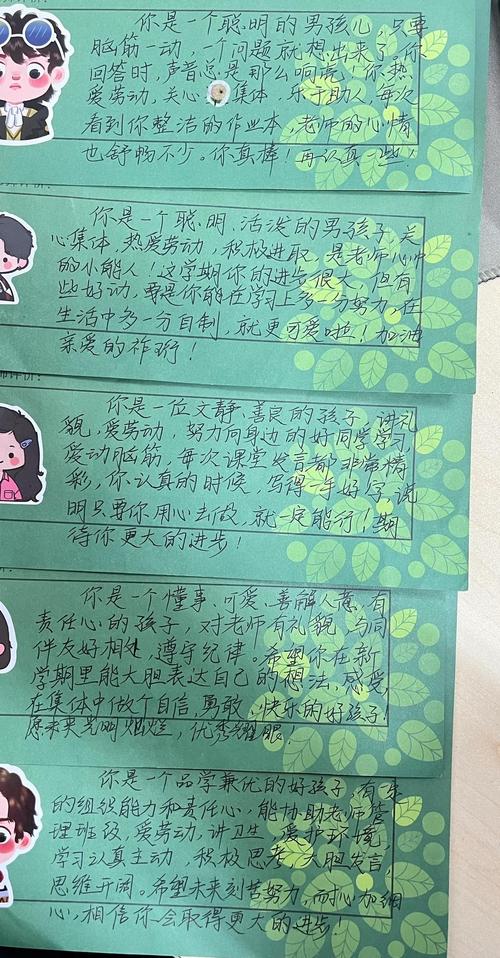 你是一个聪明的男孩儿，只要
脑筋一动，一个问题就想出来了，你
回答时，声音总是那么响亮，你热
爱劳动，关心集体，乐于助人，每次
看到你整洁的作业本，老师的心情
也舒畅不少。你真棒！再认真一些！
你是一个聪明、活泼的男孩子，关
心集体，热爱劳动，积极进取，是老师心中
的小能人！这学期你的进步很大，但有
些好动，要是你能在学习上多一分努力，在
生活中多一分自制，就更可爱啦！加油
亲爱的祚珩！
评价：
你是一位文静、善良的孩子，讲礼
貌，爱劳动，努力向身边的好同学学习
爱动脑筋，每次课堂发言都非常精
彩，你认真的时候，写得一手好字，说
明只要你用心去做，就一定能行！期
待你更大的进步！
你是一个懂事、可爱、善解人意、有
责任心的孩子，对老师有礼貌，与同
伴友好相处，遵守纪律。希望你在新
学期里能大胆表达自己的想法，感受
在集体中做个自信，勇敢，快乐的好孩子！
愿未来光明灿烂，优秀耀眼！
你是一个品学兼优的好孩子，有一定
的组织能力和责任心，能协助老师管
理班级，爱劳动，讲卫生，爱护环境，
学习认真主动，积极思考，大胆发言，
思维开阔。希望未来刻苦努力，而耐心加细
心，相信你会取得更大的进步！